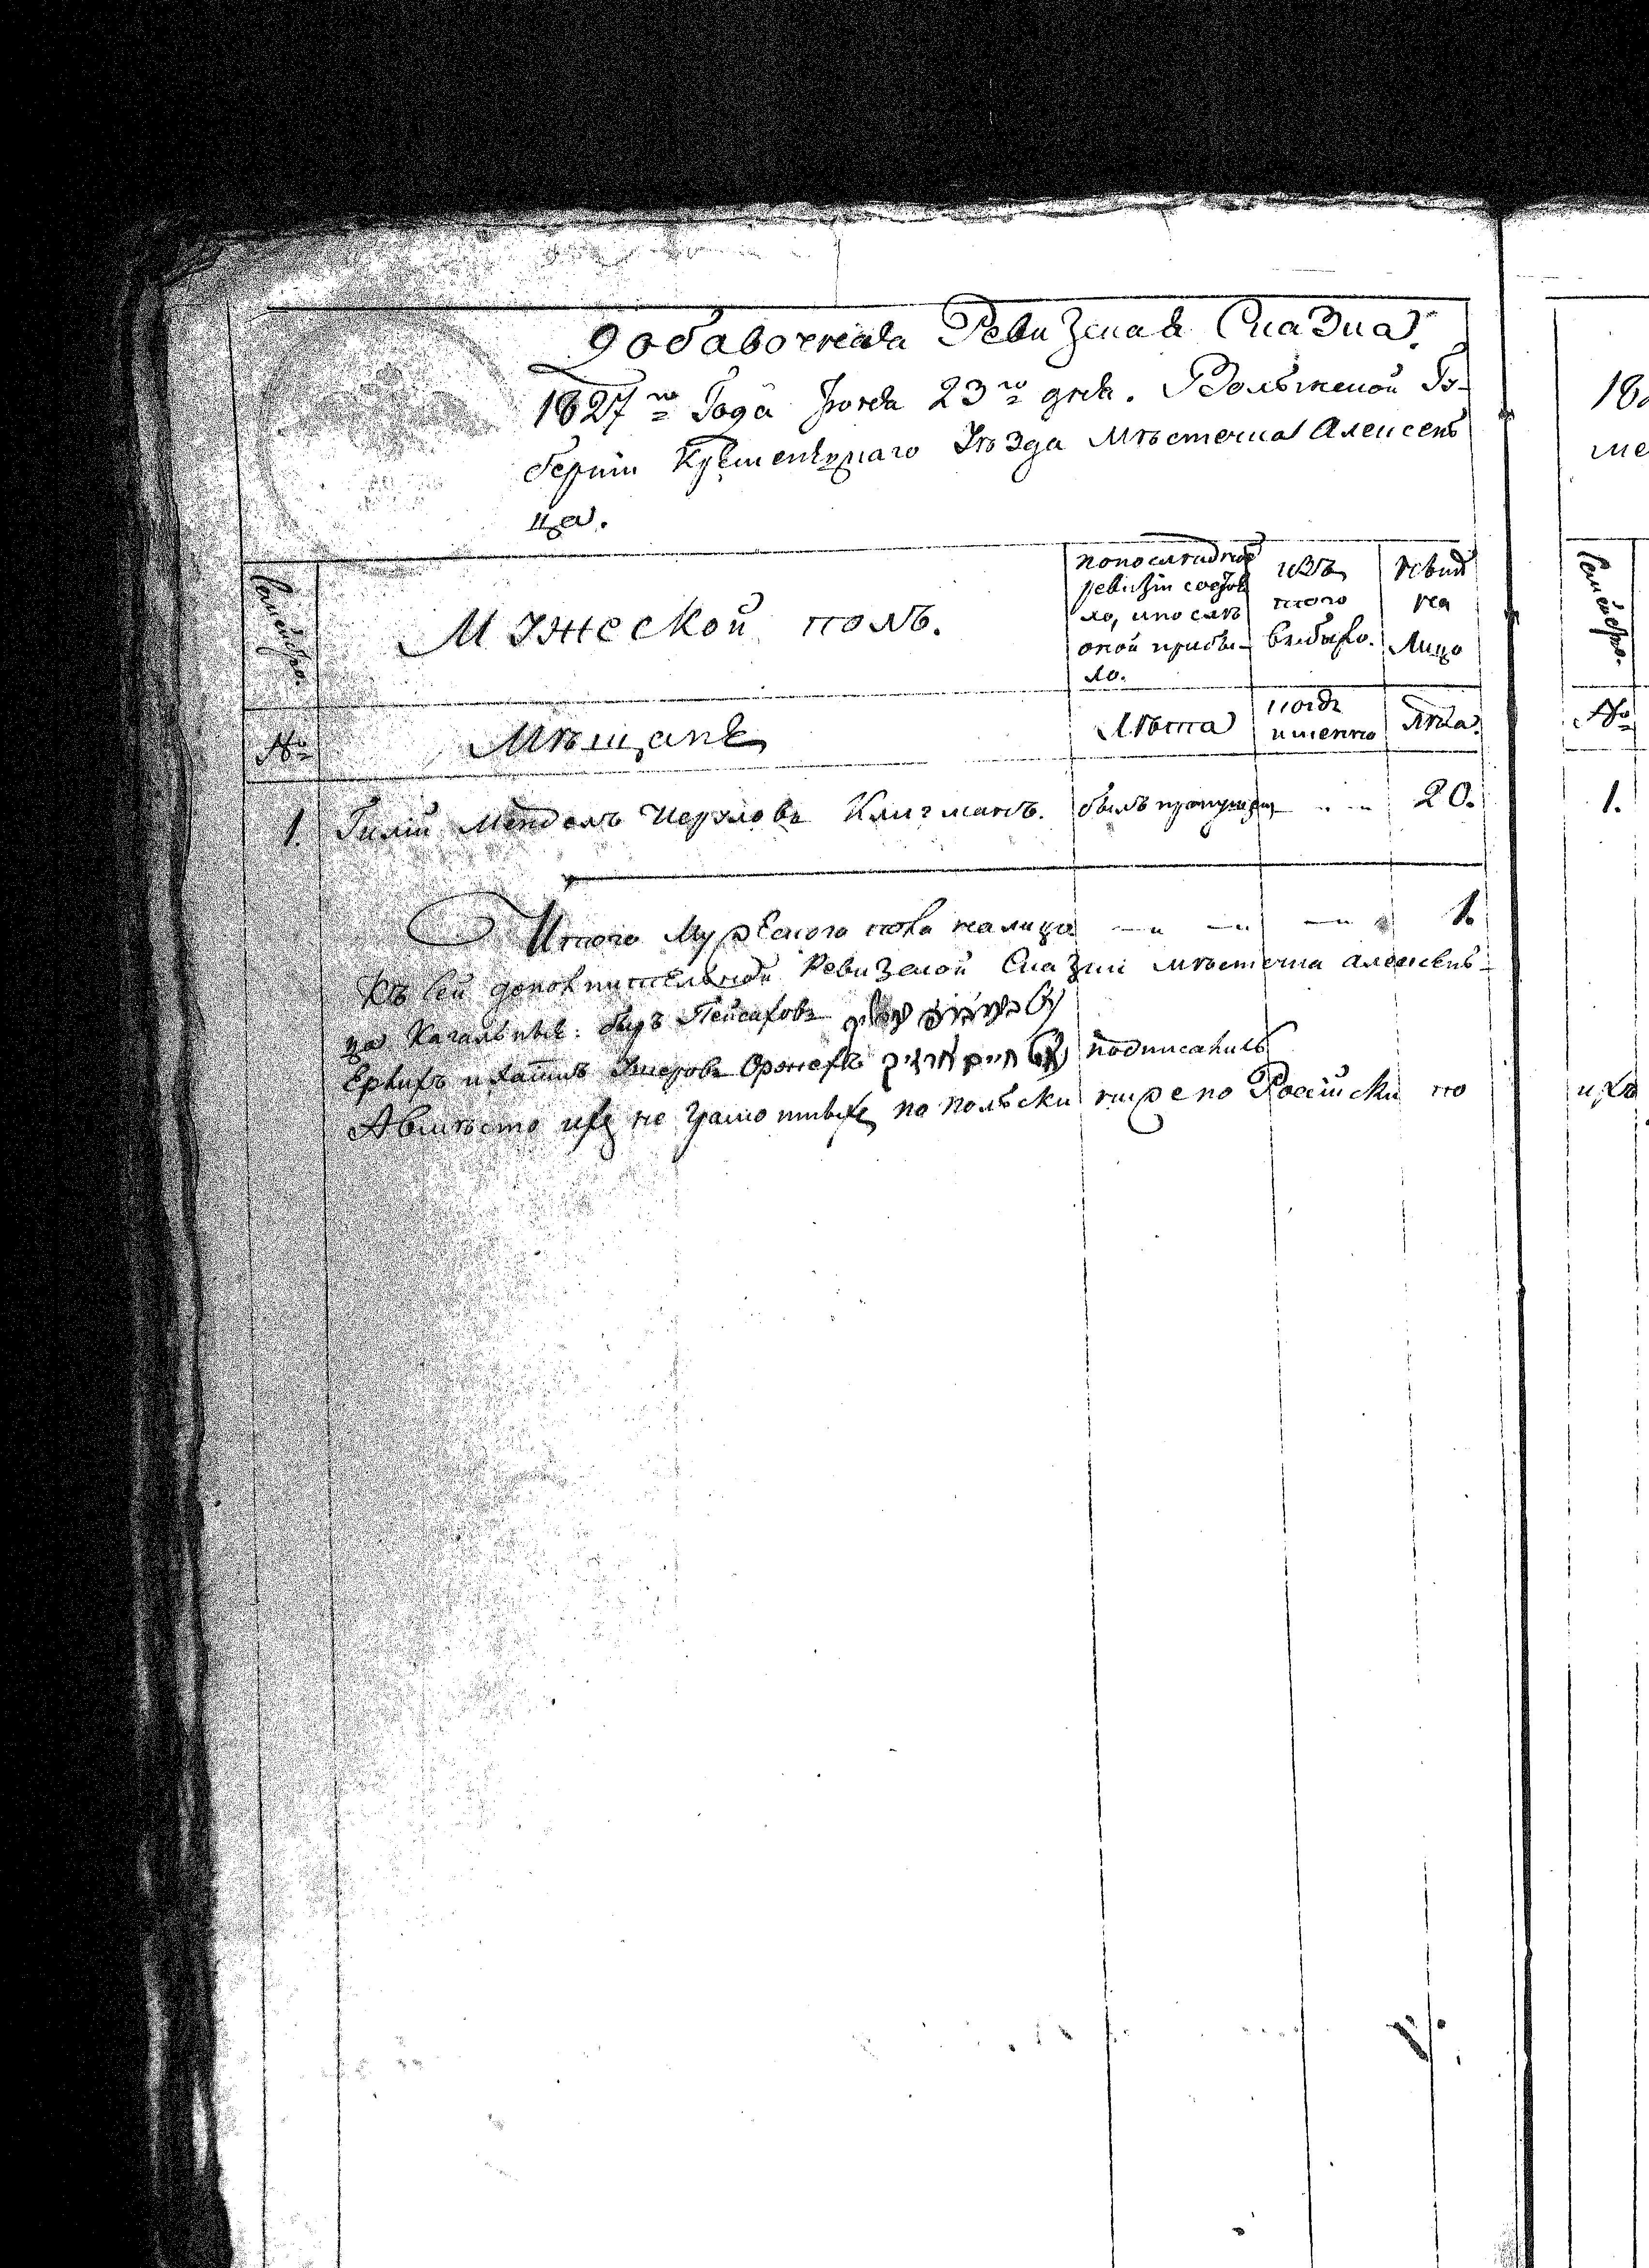 Добавочная Ревизская Сказка.
1827го Года Июня 23го дня. Волынской Гу-
берніи Кременецкаго Уѣзда Мѣстечка Алексен
ца.
Семейство.
Мужеской полъ.
по последней
ревизіи состоя
ло, и после
оной прибы-
ло.
изъ
того
выбыло.
Нынѣ
на
Лицо
№
Мѣщане
Лѣта
когда
именно
Лѣта.
1. Мендель Клигманъ. былъ пропущен 20.
Итого Мужескаго пола на лицо 1.
Къ сей дополнительной Ревизской Сказки мѣстечка Алексен-
ца Кагальные: Пейсахов
חיים подписались
А вместо их не грамотных по польски ниже по Россійски по
18
ме
Семейство.
№
1.